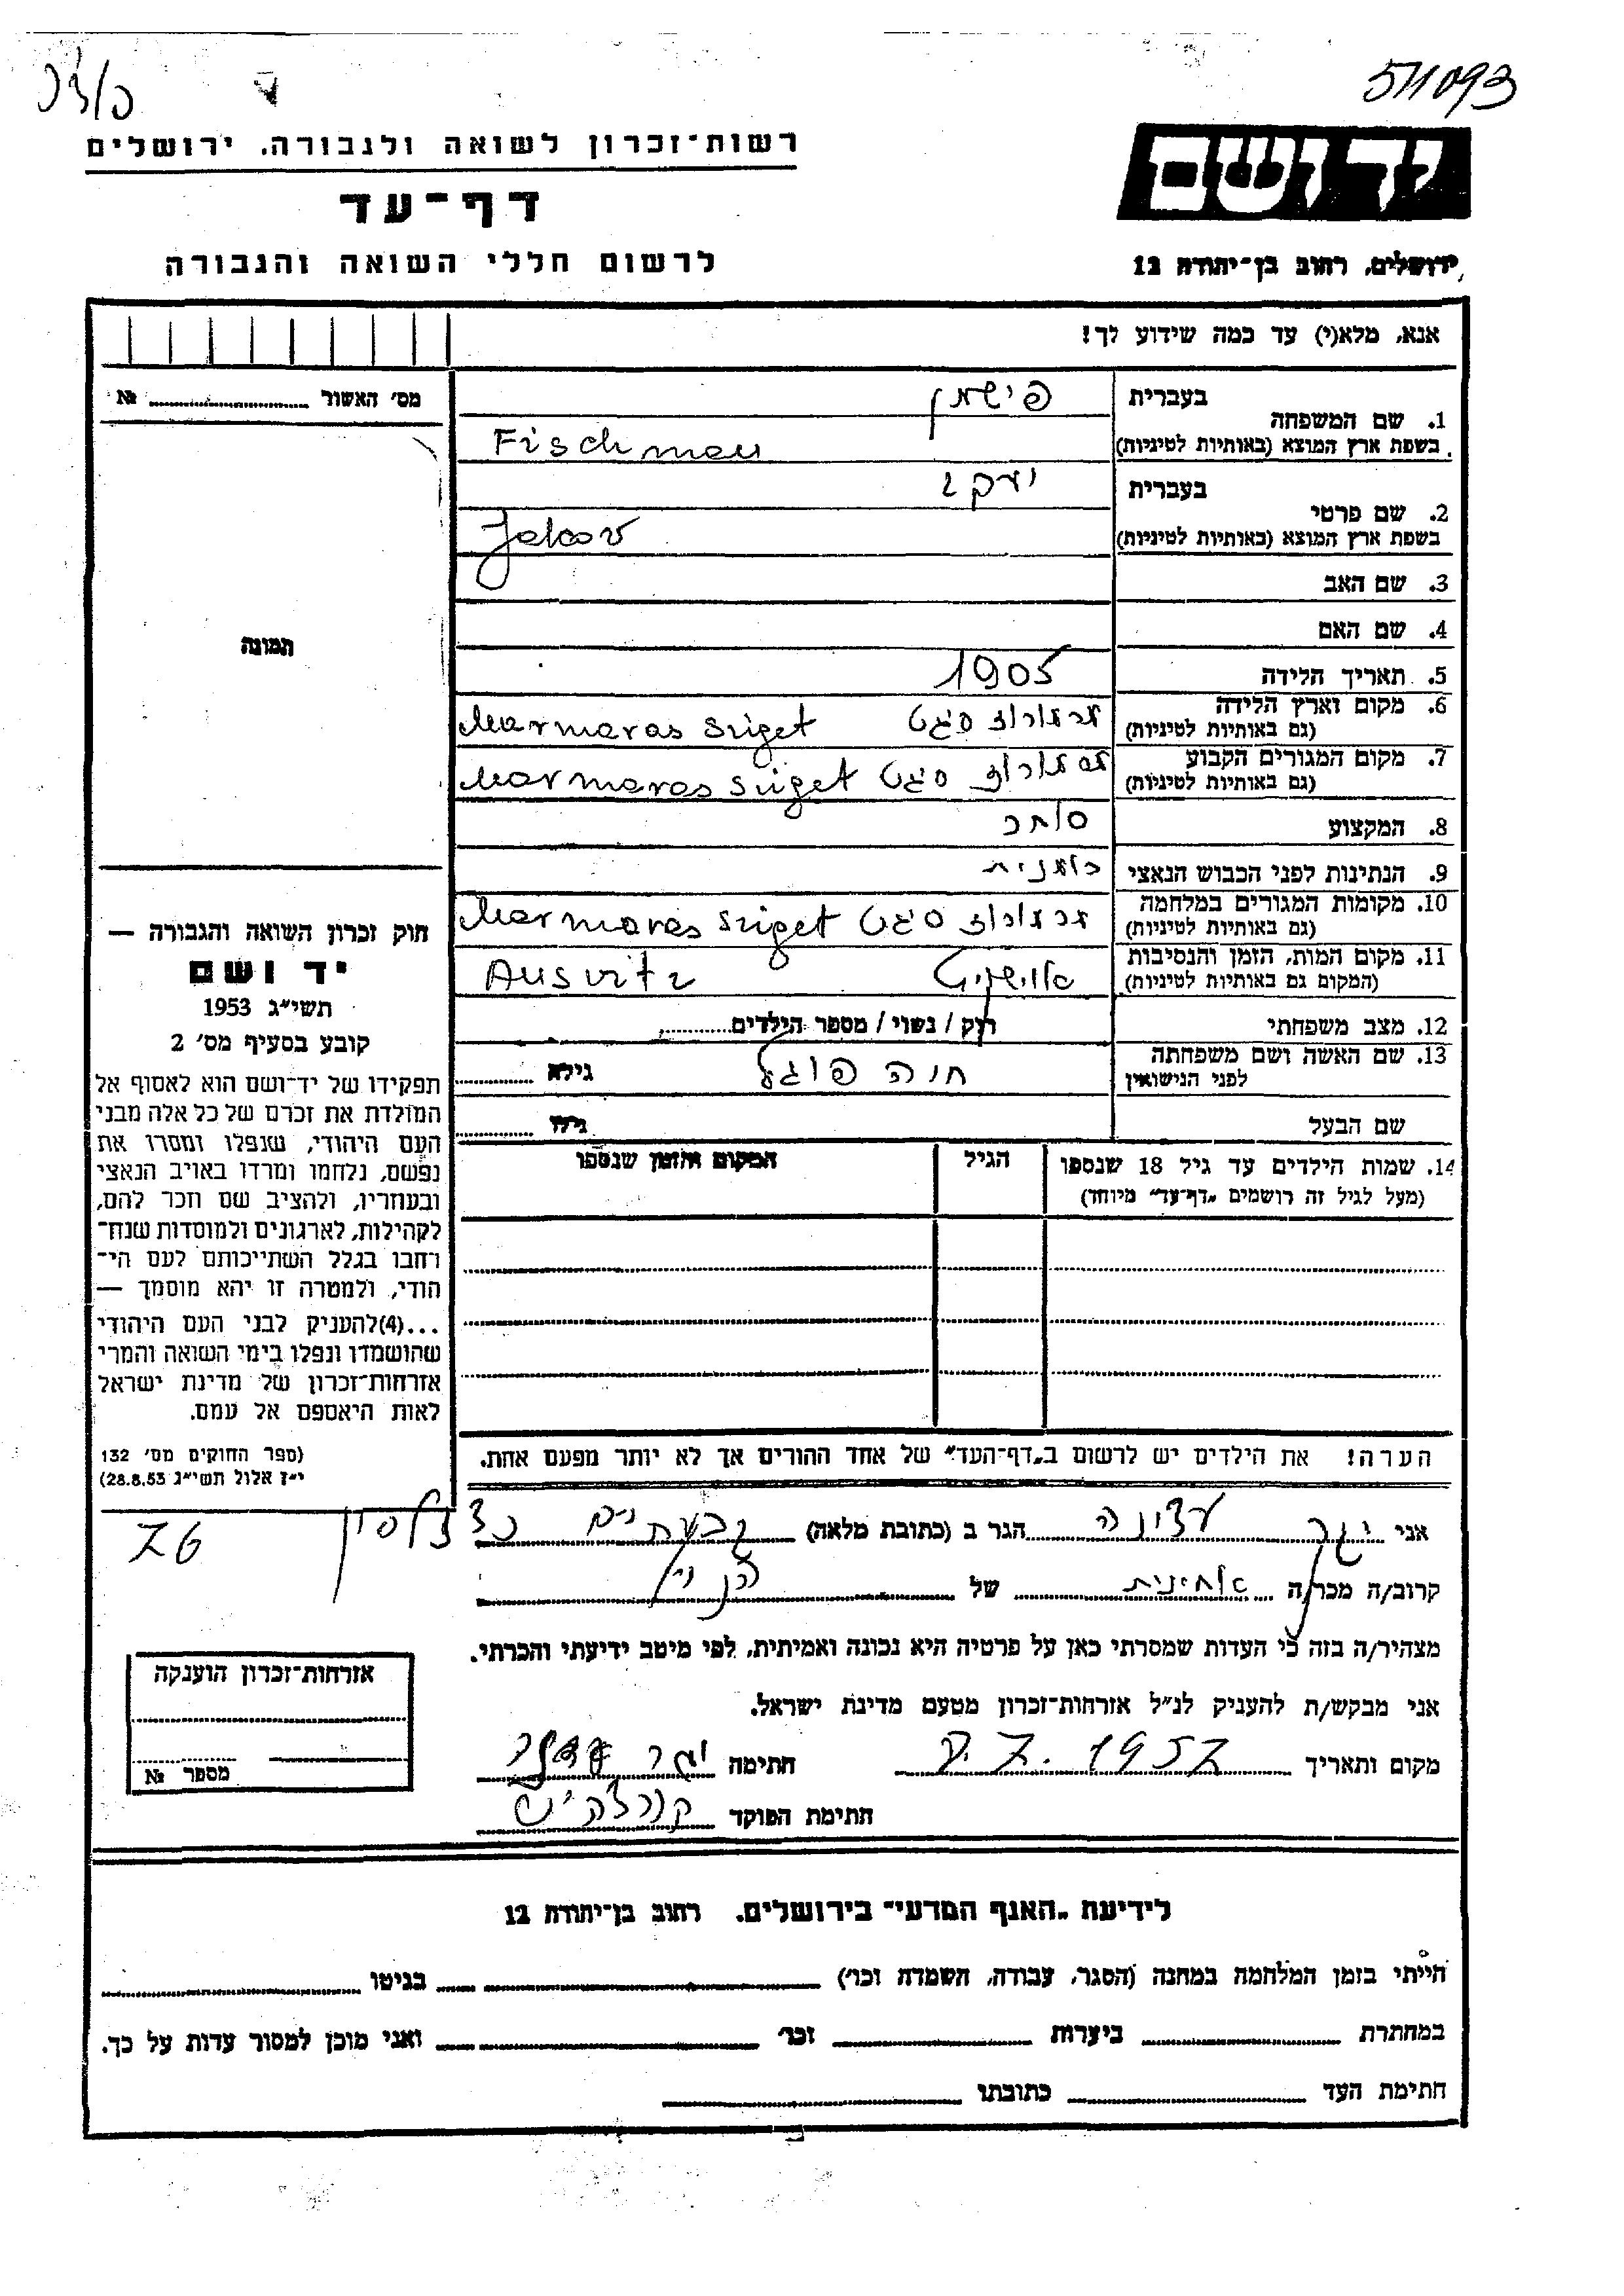 511093
רשות־זכרון לשואה ולגבורה, ירושלים
דף־עד
לרשום חללי השואה והגבורה
יד ושם
ירושלים, רחוב בן־יהודה 12
אנא, מלא(י) עד כמה שידוע לך!
מס׳ האשור №
1. שם המשפחה
בעברית פישמן
בשפת ארץ המוצא (באותיות לטיניות) Fischman
2. שם פרטי
בעברית יעקב
בשפת ארץ המוצא (באותיות לטיניות) Jakov
3. שם האב
4. שם האם
5. תאריך הלידה 1905
6. מקום וארץ הלידה
(גם באותיות לטיניות) מרמורוז סיגט Marmaras Sziget
7. מקום המגורים הקבוע
(גם באותיות לטיניות) מרמורוז סיגט Marmaras Sziget
8. המקצוע סוחר
9. הנתינות לפני הכבוש הנאצי רומנית
10. מקומות המגורים במלחמה
(גם באותיות לטיניות) מרמורוז סיגט Marmaras Sziget
11. מקום המות, הזמן והנסיבות
(המקום גם באותיות לטיניות) אושויץ Ausvitz
12. מצב משפחתי רוק / נשוי / מספר הילדים
13. שם האשה ושם משפחתה
לפני הנישואין חוה פוגל גילה
שם הבעל גילו
14. שמות הילדים עד גיל 18 שנספו
(מעל לגיל זה רושמים „דף־עד״ מיוחד)
הגיל
המקום והזמן שנספו
הערה! את הילדים יש לרשום ב„דף־העד״ של אחד ההורים אך לא יותר מפעם אחת.
תמונה
חוק זכרון השואה והגבורה —
יד ושם
תשי״ג 1953
קובע בסעיף מס׳ 2
תפקידו של יד־ושם הוא לאסוף אל
המולדת את זכרם של כל אלה מבני
העם היהודי, שנפלו ומסרו את
נפשם, נלחמו ומרדו באויב הנאצי
ובעוזריו, ולהציב שם וזכר להם,
לקהילות, לארגונים ולמוסדות שנח־
רחבו בגלל השתייכותם לעם הי־
הודי, ולמטרה זו יהא מוסמך —
...(4)להעניק לבני העם היהודי
שהושמדו ונפלו בימי השואה והמרי
אזרחות־זכרון של מדינת ישראל
לאות היאספם אל עמם.
(ספר החוקים מס׳ 132
י״ז אלול תשי״ג 28.8.53)
אני יגר עדונה הגר ב (כתובת מלאה) גבעתיים
76
קרוב/ה מכר/ה אחינית של הנ״ל
מצהיר/ה בזה כי העדות שמסרתי כאן על פרטיה היא נכונה ואמיתית, לפי מיטב ידיעתי והכרתי.
אני מבקש/ת להעניק לנ״ל אזרחות־זכרון מטעם מדינת ישראל.
מקום ותאריך 1957 חתימה יגר
חתימת הפוקד
אזרחות־זכרון הוענקה
מספר №
לידיעת „האגף המדעי״ בירושלים, רחוב בן־יהודה 12
הייתי בזמן המלחמה במחנה (הסגר, עבודה, השמדה וכר׳) בגיטו
במחתרת ביערות וכר׳ ואני מוכן למסור עדות על כך.
חתימת העד כתובתו